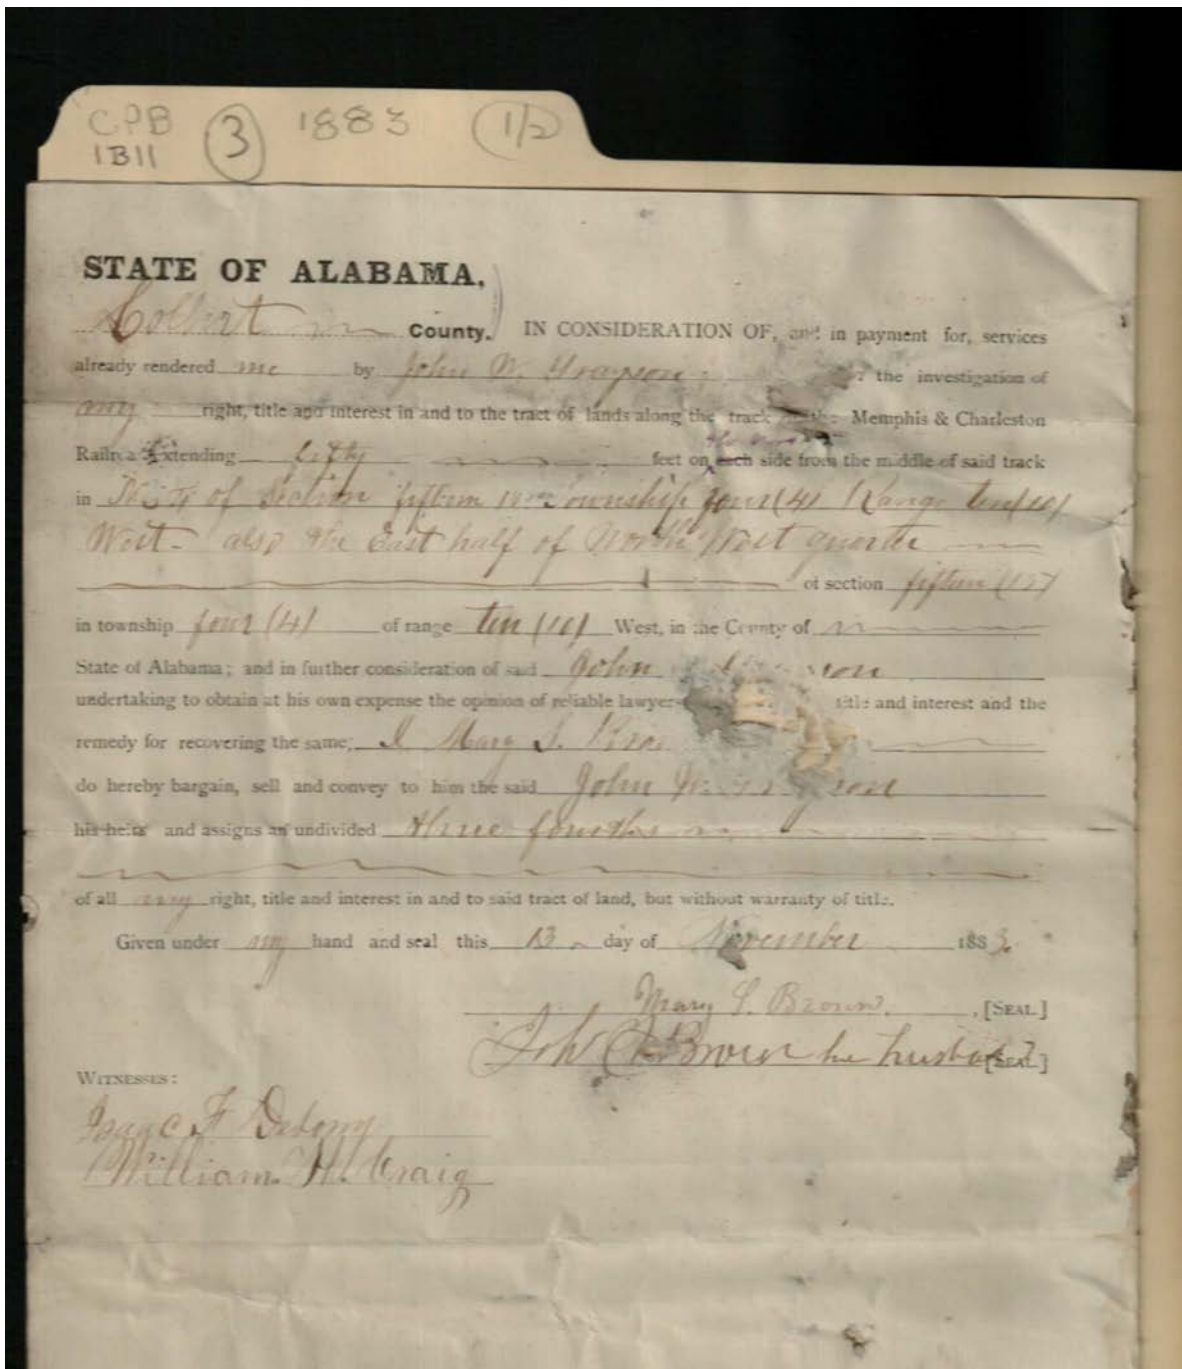 CPB 3 1883 1/2
1B11
STATE OF ALABAMA.
Colbert County. IN CONSIDERATION OF, and in payment for, services
already rendered me by John W. the investigation of
my right, title and interest in and to the tract of lands along the track the Memphis & Charleston
extending fifty feet on each side from the middle of said track
in of Section fifteen Township four (4) Range ten (10)
West - also the East half of North West quarter
of section fifteen (15)
in township four (4) of range ten (10) West, in the County of
State of Alabama; and in further consideration of said John
undertaking to obtain at his own expense the opinion of reliable lawyer title and interest and the
remedy for recovering the same, I Mary S.
do hereby bargain, sell and convey to him the said John W.
his heirs and assigns an undivided three fourths
of all my right, title and interest in and to said tract of land, but without warranty of title.
Given under my hand and seal this 13 day of November 1883.
Mary S. Brown. [SEAL]
Brown husband [SEAL]
WITNESSES:
Isaac F
William H. Craig